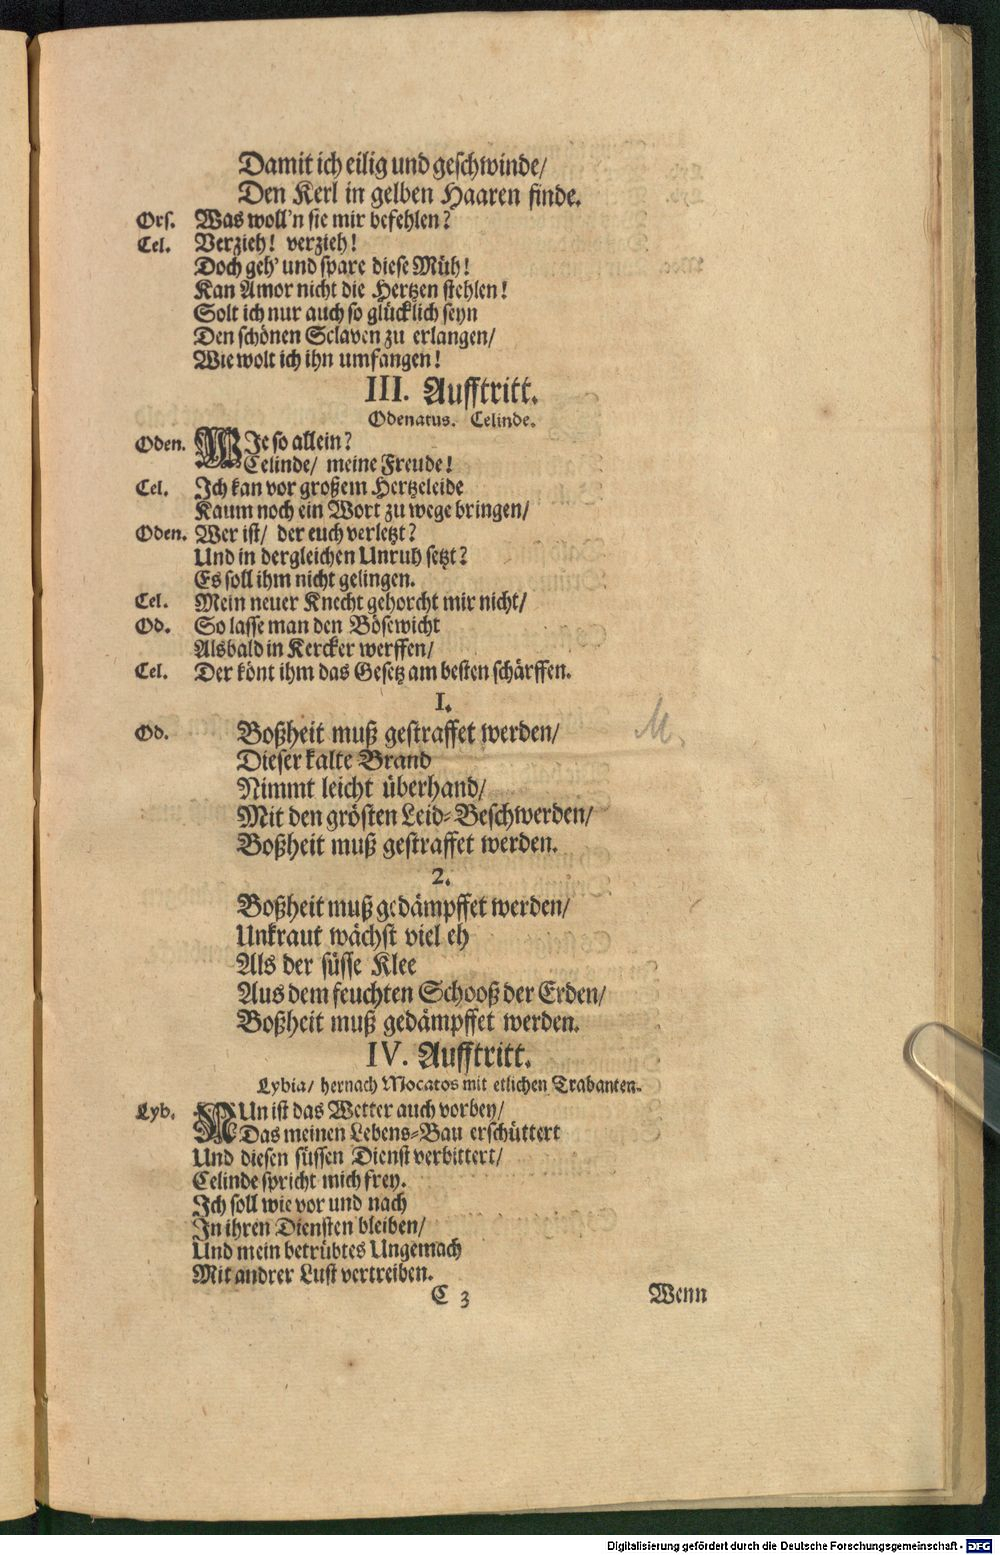 Damit ich eilig und geschwinde/
Den Kerl in gelben Haaren finde.
Ors. Was woll'n sie mir befehlen?
Cel. Verzieh! verzieh!
Doch geh' und spare diese Müh!
Kan Amor nicht die Hertzen stehlen!
Solt ich nur auch so glücklich seyn
Den schönen Sclaven zu erlangen/
Wie wolt ich ihn umfangen!
III. Aufftritt.
Odenatus. Celinde.
Oden. WIe so allein?
Celinde/ meine Freude!
Cel. Ich kan vor großem Hertzeleide
Kaum noch ein Wort zu wege bringen/
Oden. Wer ist/ der euch verletzt?
Und in dergleichen Unruh setzt?
Es soll ihm nicht gelingen.
Cel. Mein neuer Knecht gehorcht mir nicht/
Od. So lasse man den Bösewicht
Alsbald in Kercker werffen/
Cel. Der könt ihm das Gesetz am besten schärffen.
I.
Od. Boßheit muß gestraffet werden/
Dieser kalte Brand
Nimmt leicht überhand/
Mit den grösten Leid-Beschwerden/
Boßheit muß gestraffet werden.
M.
2.
Boßheit muß gedämpffet werden/
Unkraut wächst viel eh
Als der süsse Klee
Aus dem feuchten Schooß der Erden/
Boßheit muß gedämpffet werden.
IV. Aufftritt.
Lybia/ hernach Mocatos mit etlichen Trabanten.
Lyb. NUn ist das Wetter auch vorbey/
Das meinen Lebens-Bau erschüttert
Und diesen süssen Dienst verbittert/
Celinde spricht mich frey.
Ich soll wie vor und nach
In ihren Diensten bleiben/
Und mein betrübtes Ungemach
Mit andrer Lust vertreiben.
C 3 Wenn
Digitalisierung gefördert durch die Deutsche Forschungsgemeinschaft - DFG